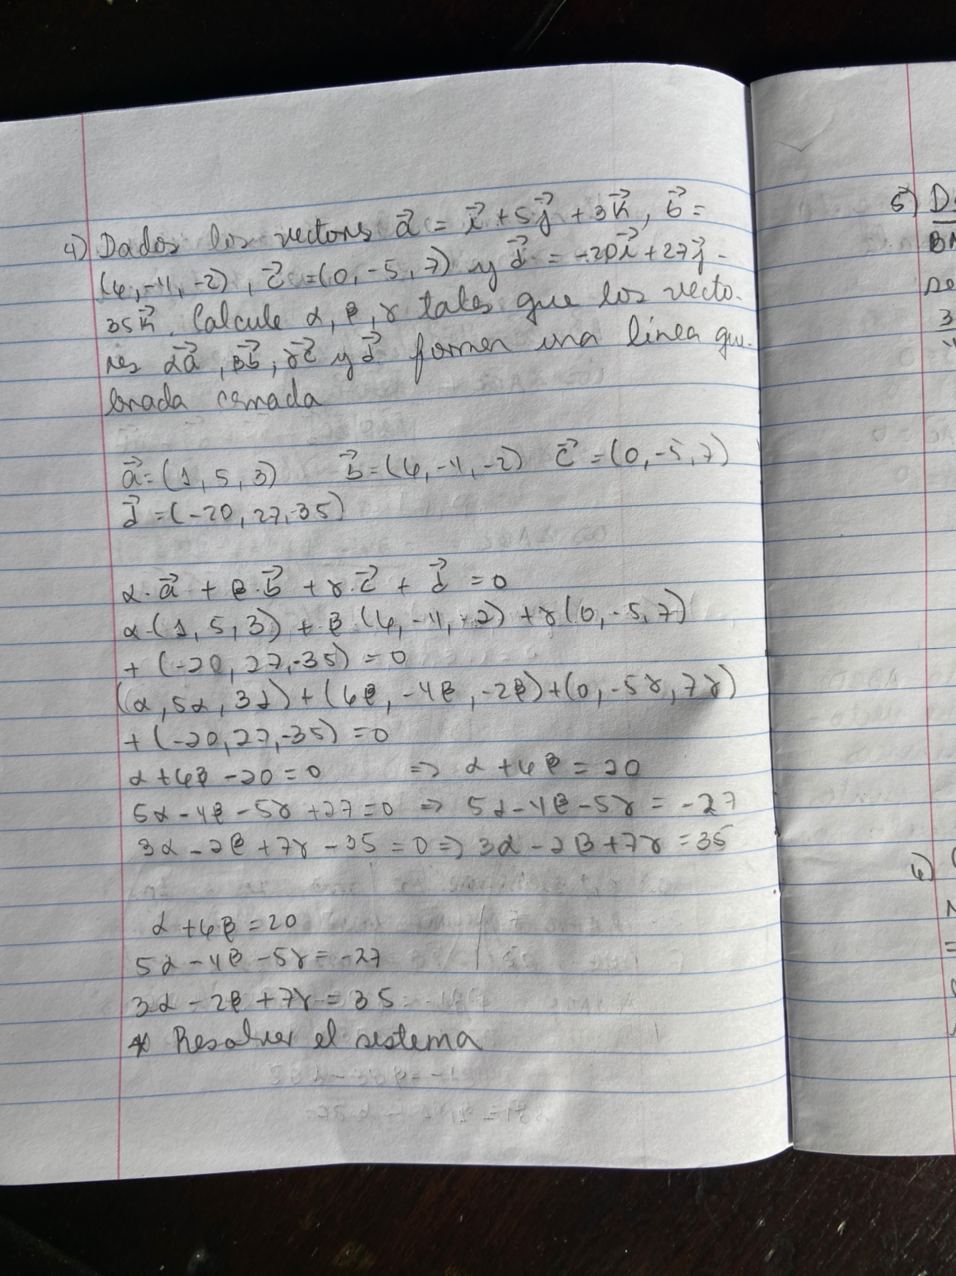 4) Dados los vectores a⃗ = i⃗ + 5j⃗ + 3k⃗, b⃗ =
(6, -4, -2), c⃗ = (0, -5, 7) y d⃗ = -20i⃗ + 27j⃗ -
35k⃗. Calcule α, β, γ tales que los vecto-
res αa⃗, βb⃗, γc⃗ y d⃗ formen una línea que-
brada cerrada
a⃗ = (1, 5, 3) b⃗ = (6, -4, -2) c⃗ = (0, -5, 7)
d⃗ = (-20, 27, -35)
α·a⃗ + β·b⃗ + γ·c⃗ + d⃗ = 0
α·(1, 5, 3) + β·(6, -4, -2) + γ(0, -5, 7)
+ (-20, 27, -35) = 0
(α, 5α, 3α) + (6β, -4β, -2β) + (0, -5γ, 7γ)
+ (-20, 27, -35) = 0
α + 6β - 20 = 0 => α + 6β = 20
5α - 4β - 5γ + 27 = 0 => 5α - 4β - 5γ = -27
3α - 2β + 7γ - 35 = 0 => 3α - 2β + 7γ = 35
α + 6β = 20
5α - 4β - 5γ = -27
3α - 2β + 7γ = 35
* Resolver el sistema
5)
6)